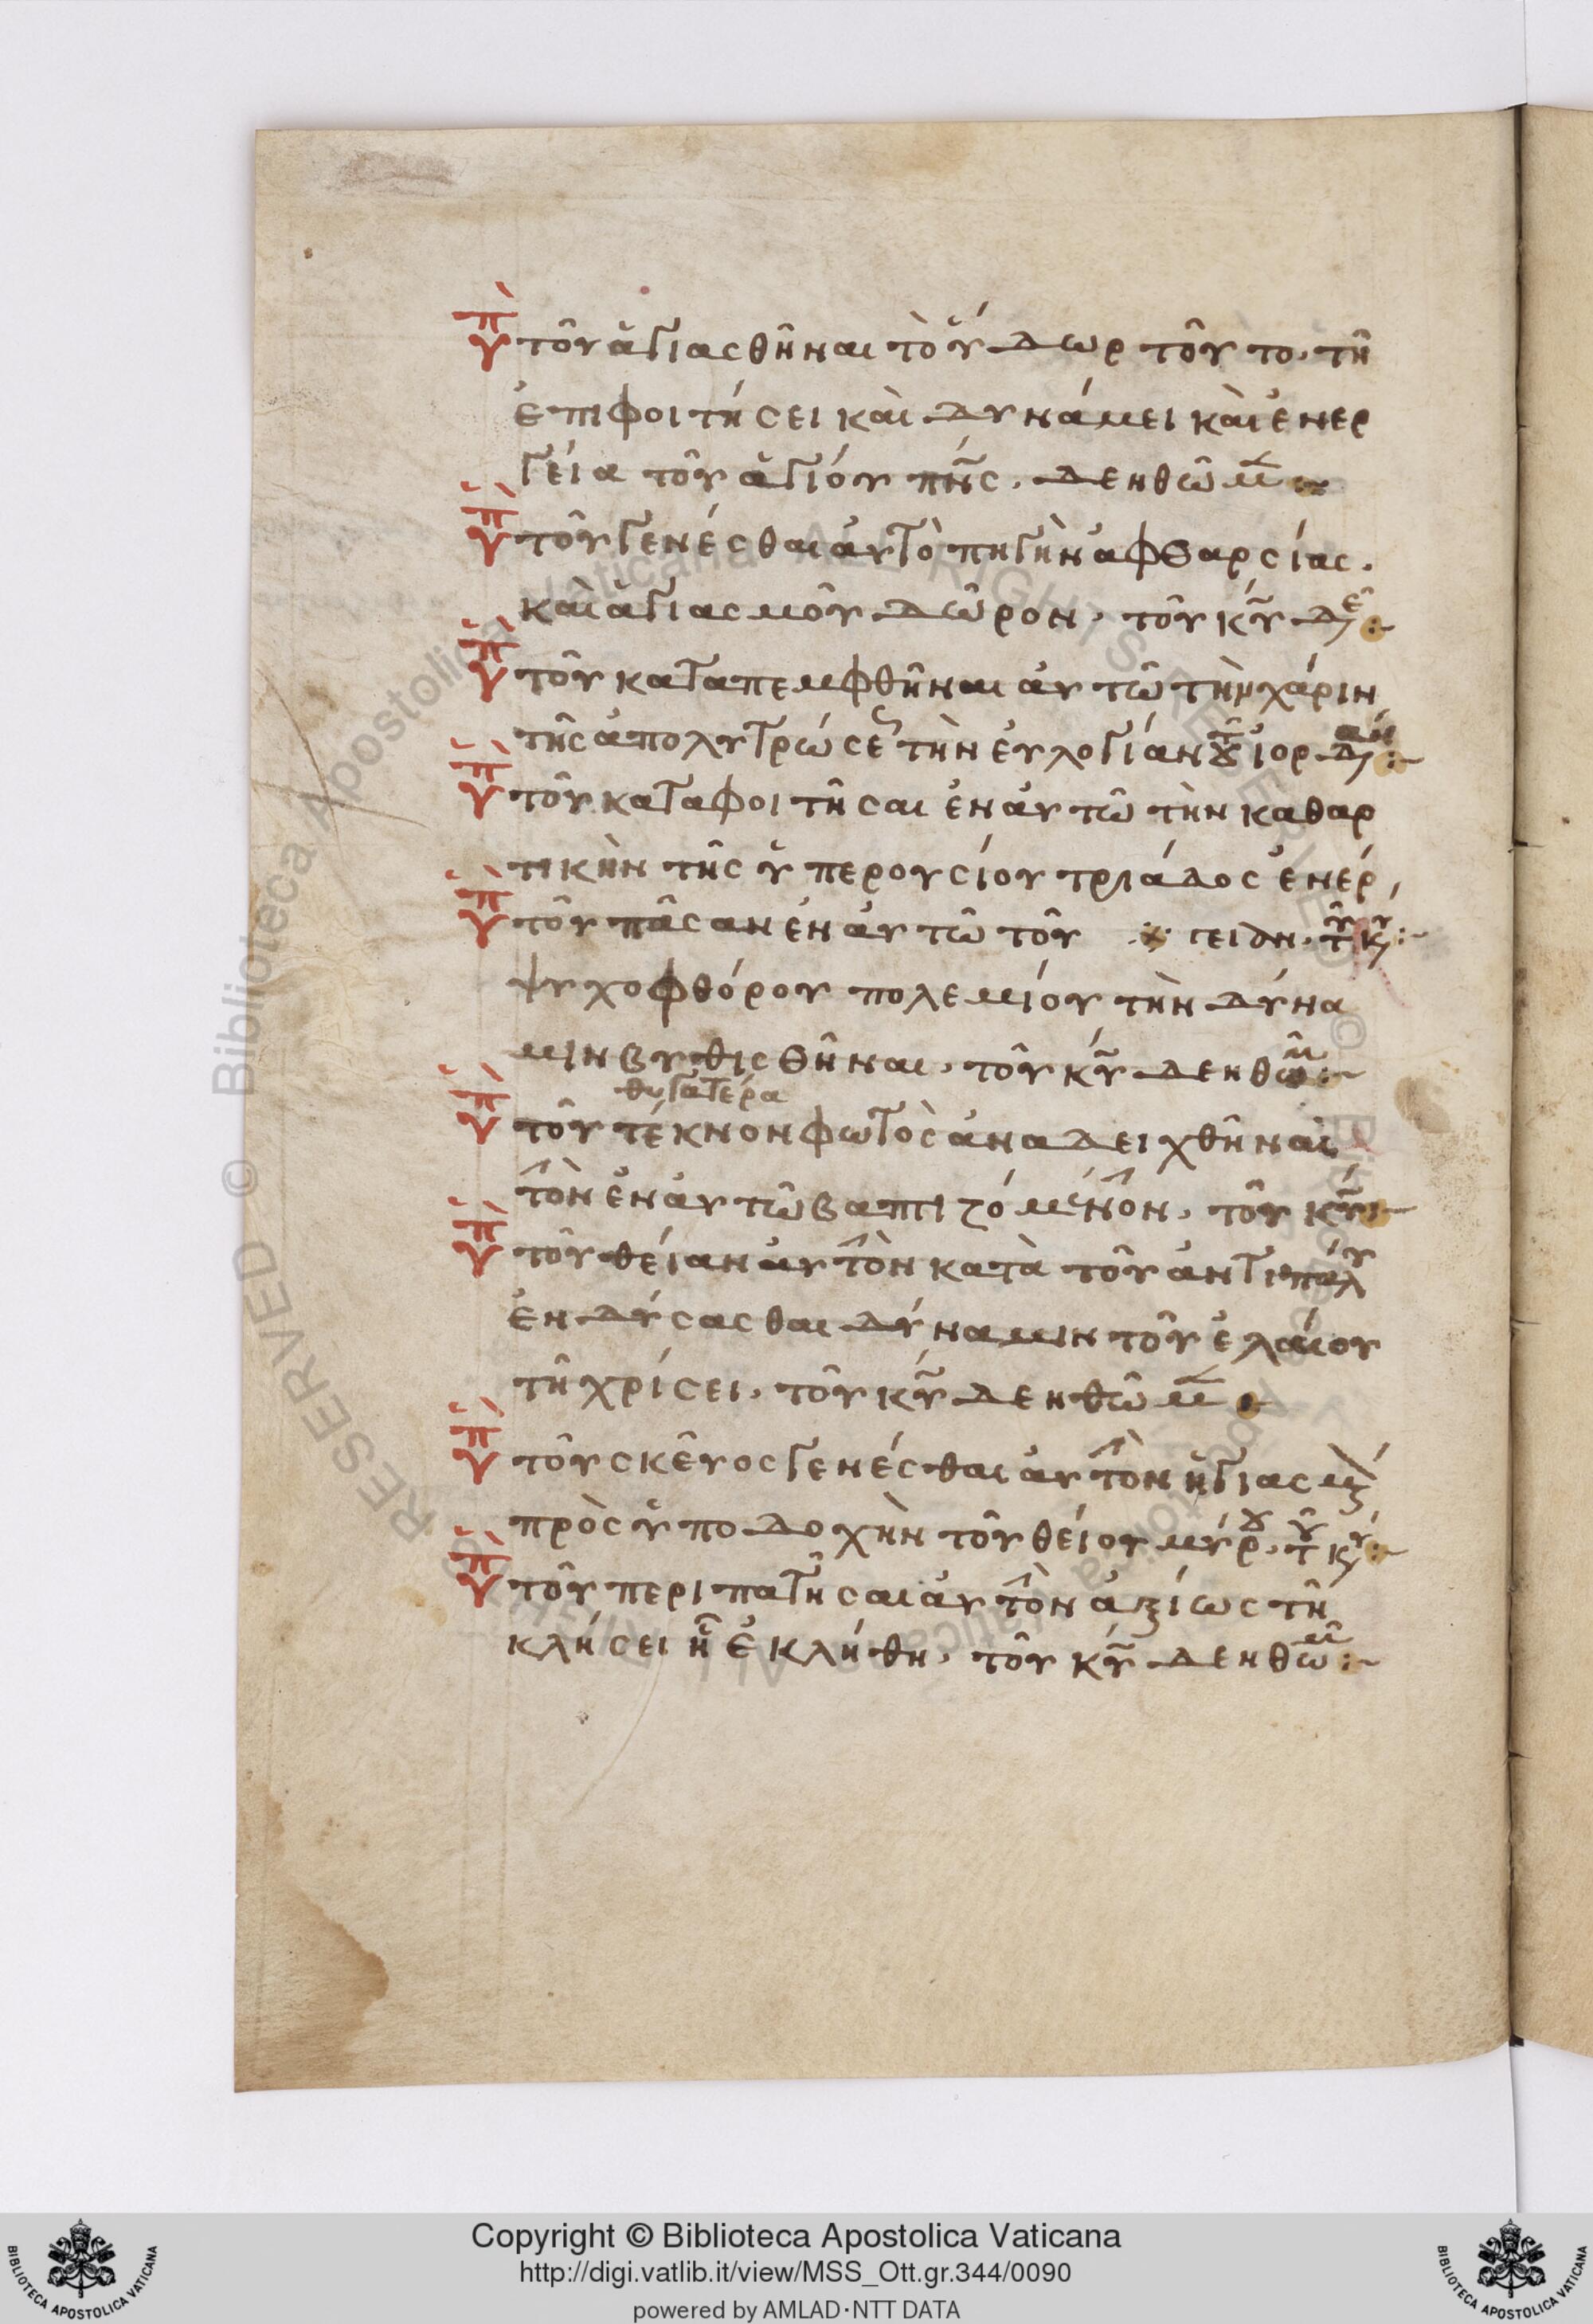 Ὑπ τοῦ ἁγιασθῆναι τὸ ὕδωρ τοῦτο· τῆ
ἐπιφοιτήσει καὶ δυνάμει καὶ ἐνερ
γεία τοῦ ἁγίου πν̅ς· δεηθῶμ
Ὑπ τοῦ γενέσθαι αὐτὸ πηγὴν ἀφθαρσίας·
καὶ ἁγιασμοῦ δῶρον· τοῦ κυ̅ δε
Ὑπ τοῦ καταπεμφθῆναι αὐτῶ τὴν χάριν
τῆς ἀπολυτρώσε τὴν εὐλογίαν τοῦ ἰορδάν
Ὑπ τοῦ καταφοιτῆσαι ἐν αὐτῶ τὴν καθαρ
τικὴν τῆς ὑπερουσίου τριάδος ἐνέρ
Ὑπ τοῦ πᾶσαν ἐν αὐτῶ τοῦ γειαν· τοῦ κυ
ψυχοφθόρου πολεμίου τὴν δύνα
μιν βυθισθῆναι· τοῦ κυ̅ δεηθῶμ
θυγατέρα
Ὑπ τοῦ τέκνον φωτὸς ἀναδειχθῆναι
τὸν ἐν αὐτῶ βαπτιζόμενον· τοῦ κυ̅
Ὑπ τοῦ θείαν αὐτὸν κατὰ τοῦ ἀντιπάλου
ἐνδύσασθαι δύναμιν τοῦ ἐλαίου
τῆ χρίσει· τοῦ κυ̅ δεηθῶμ
Ὑπ τοῦ σκεῦος γενέσθαι αὐτὸν ἡγιασμέ
πρὸς ὑποδοχὴν τοῦ θείου μύρου· τοῦ κυ
Ὑπ τοῦ περιπατῆσαι αὐτὸν ἀξίως τῆ
κλήσει ἧ ἐκλήθη· τοῦ κυ̅ δεηθῶμ
Copyright © Biblioteca Apostolica Vaticana
http://digi.vatlib.it/view/MSS_Ott.gr.344/0090
powered by AMLAD·NTT DATA
BIBLIOTECA APOSTOLICA VATICANA
BIBLIOTECA APOSTOLICA VATICANA